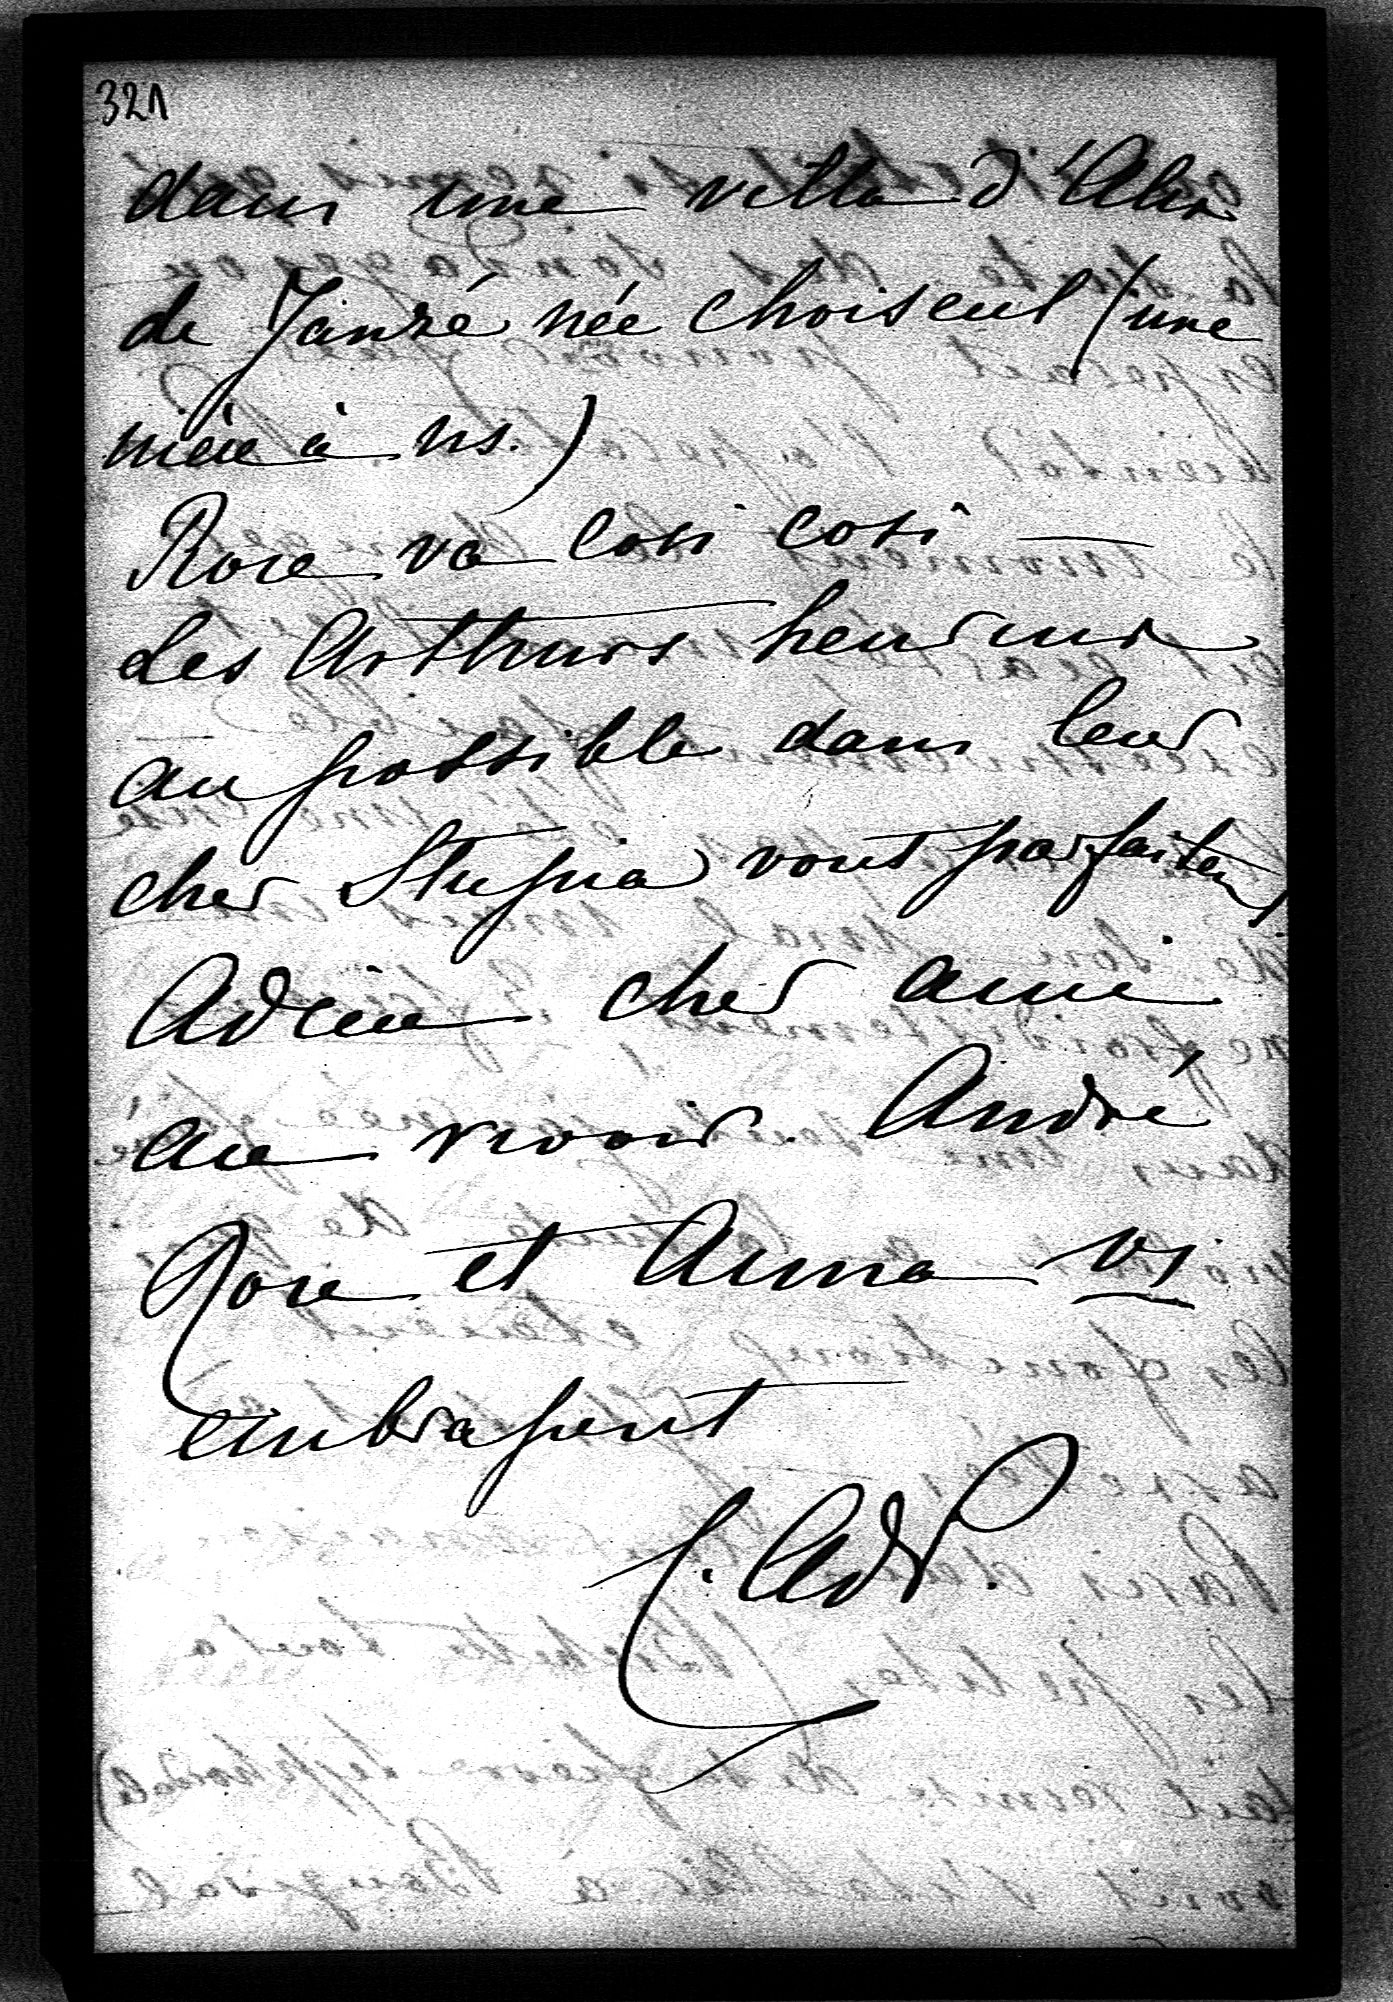 321
dans une villa d'Alix
de Janzé née choiseul (une
nièce à ns.)
Rose va cosi cosi —
Les Arthurs heureux
au possible dans leur
cher Stupia vont parfaitem
Adieu cher ami
au revoir. André
Rose et Anna vs
embrassent
C. AdP.